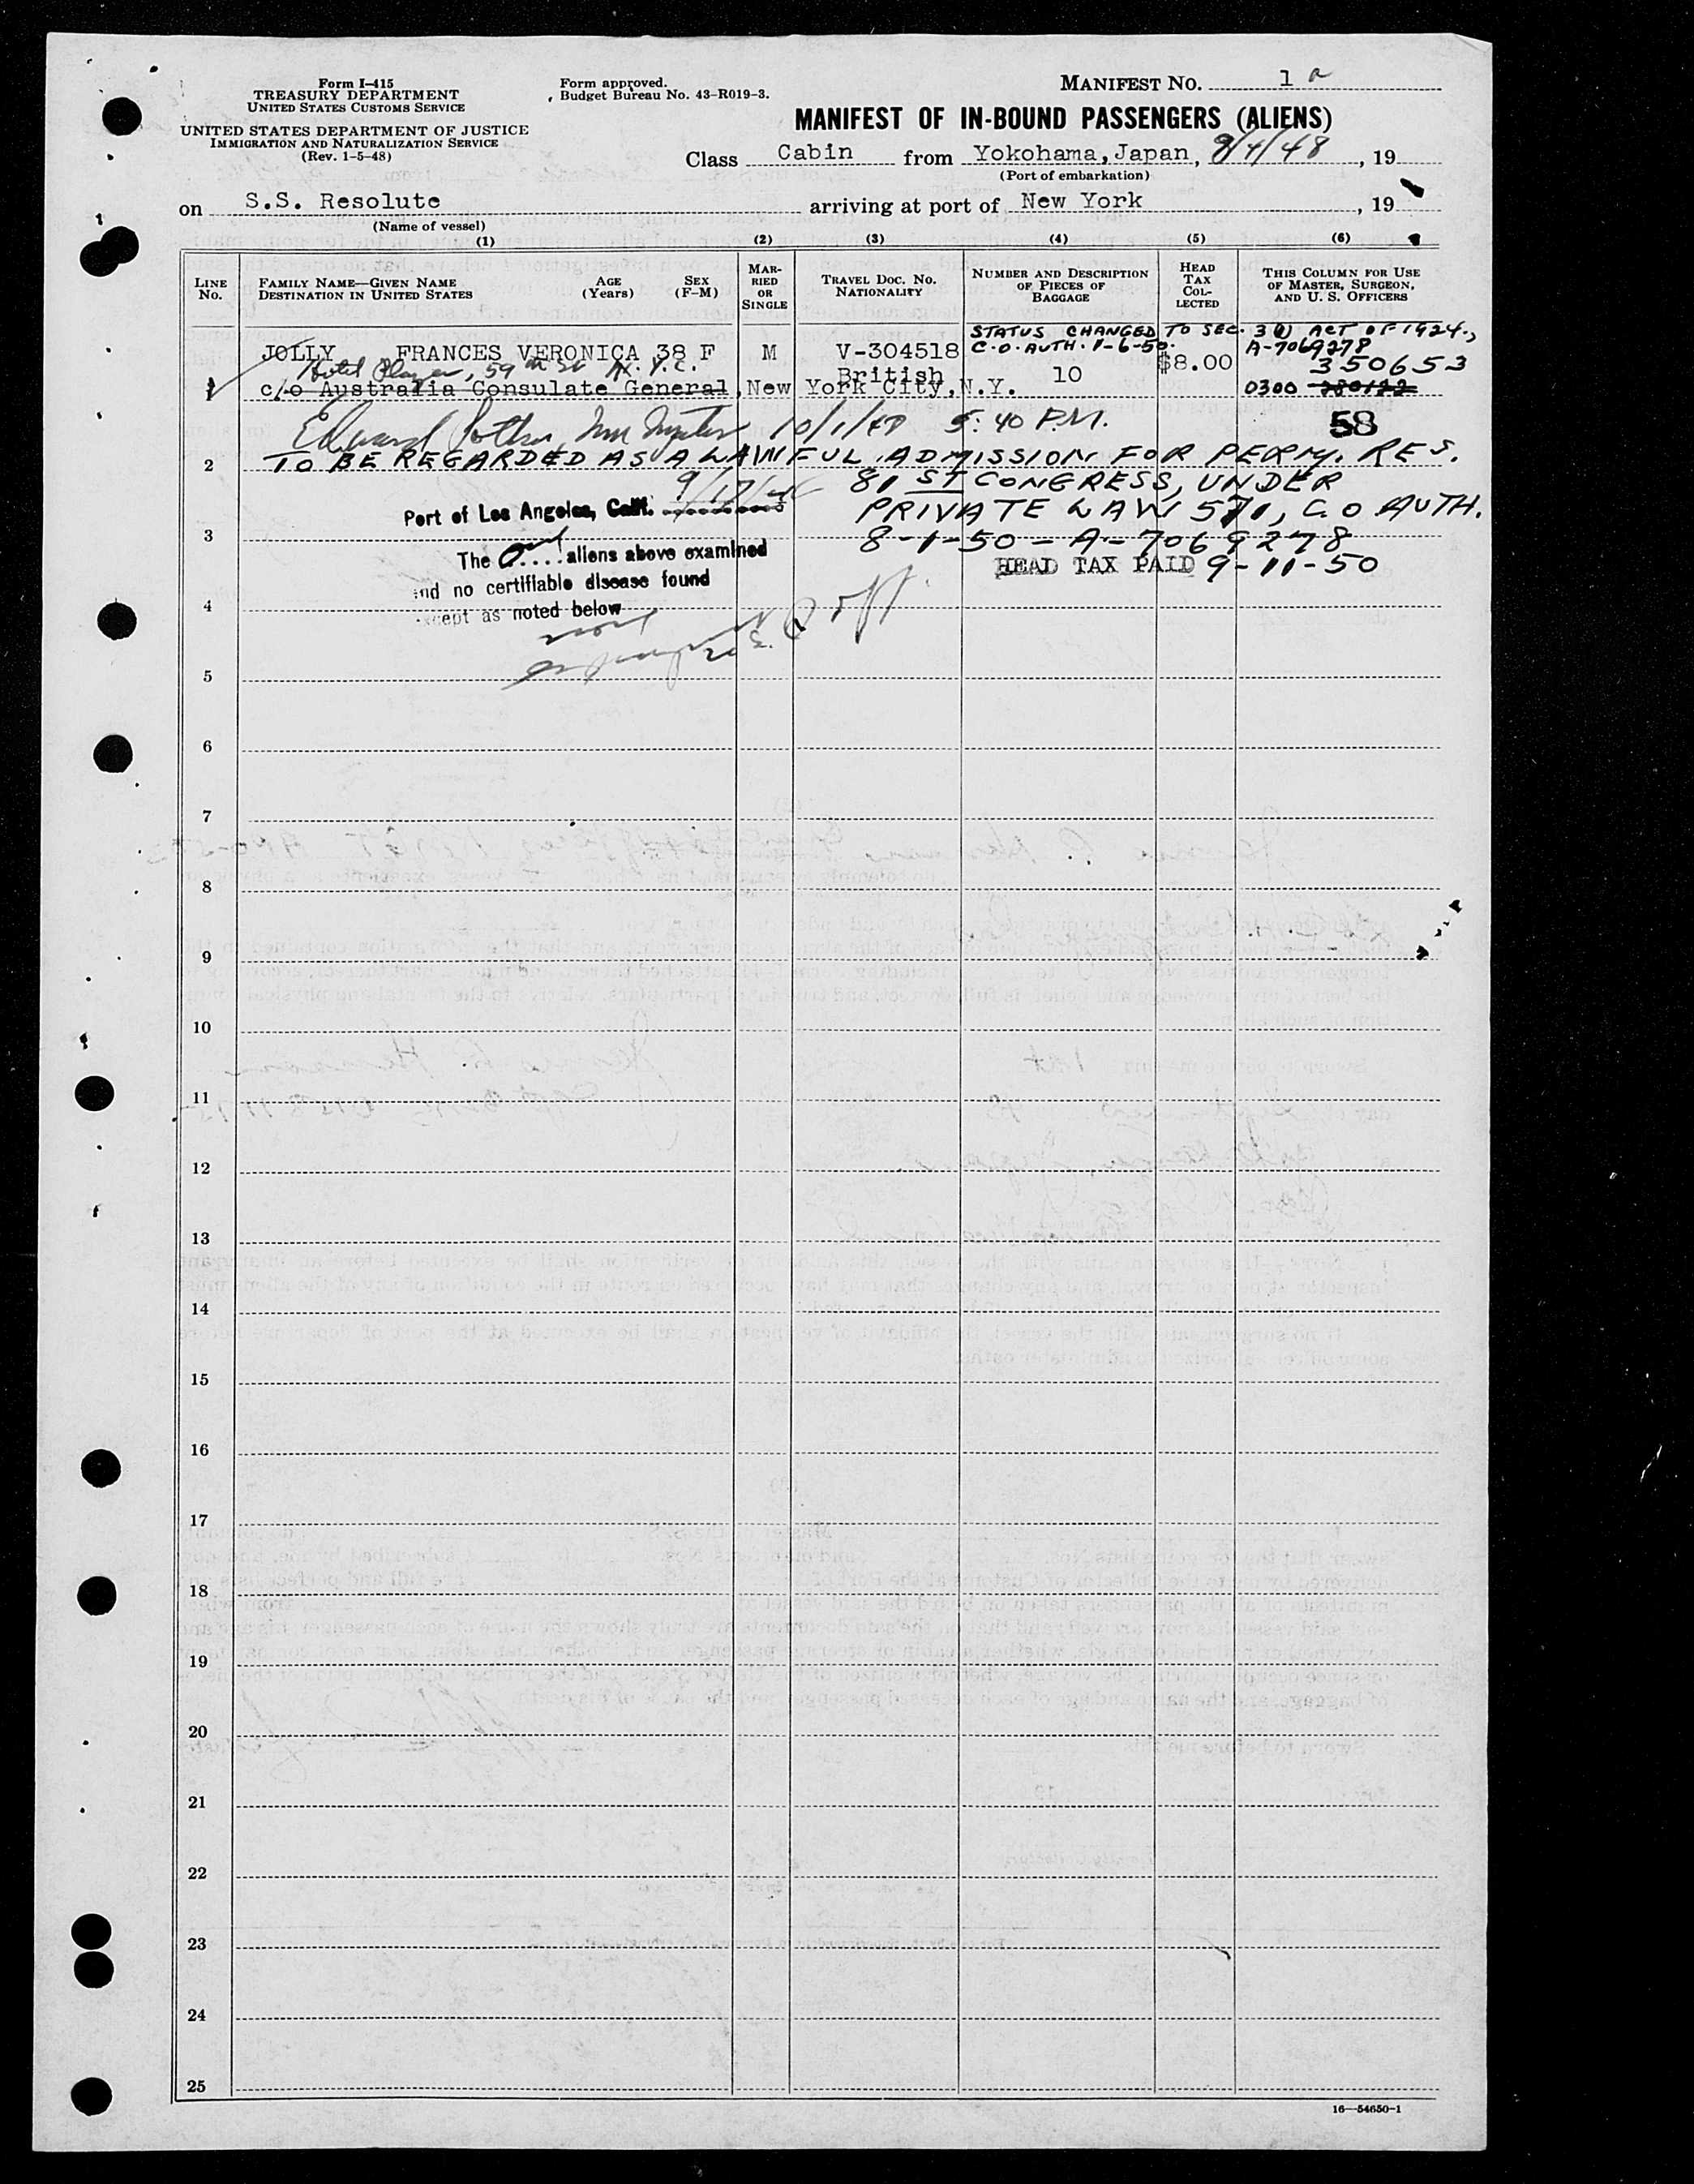 Form I-415
TREASURY DEPARTMENT
UNITED STATES CUSTOMS SERVICE
UNITED STATES DEPARTMENT OF JUSTICE
IMMIGRATION AND NATURALIZATION SERVICE
(Rev. 1-5-48)
Form approved.
Budget Bureau No. 43-R019-3.
MANIFEST NO. 1 a
MANIFEST OF IN-BOUND PASSENGERS (ALIENS)
Class Cabin from Yokohama, Japan, 9/4/48, 19
(Port of embarkation)
on S.S. Resolute arriving at port of New York, 19
(Name of vessel)
(1) (2) (3) (4) (5) (6)
LINE No.
FAMILY NAME—GIVEN NAME
DESTINATION IN UNITED STATES
AGE (Years)
SEX (F-M)
MARRIED OR SINGLE
TRAVEL DOC. NO.
NATIONALITY
NUMBER AND DESCRIPTION OF PIECES OF BAGGAGE
HEAD TAX COLLECTED
THIS COLUMN FOR USE OF MASTER, SURGEON, AND U. S. OFFICERS
STATUS CHANGED TO SEC. 3(1) ACT OF 1924.,
C.O. AUTH. 1-6-50. A-7069278
JOLLY FRANCES VERONICA 38 F M V-304518 $8.00 350653
Hotel 59th St N.Y.C. British 10
1 c/o Australia Consulate General, New York City, N.Y. 0300 280122
58
Edward 10/1/48 5:40 P.M.
2 TO BE REGARDED AS A LAWFUL ADMISSION FOR PERM. RES.
81ST CONGRESS, UNDER
Port of Los Angeles, Calif. 9/17/48
PRIVATE LAW 571, C.O AUTH.
3
8-1-50 - A-7069278
The One aliens above examined
HEAD TAX PAID 9-11-50
and no certifiable disease found
4
except as noted below
none
5
6
7
8
9
10
11
12
13
14
15
16
17
18
19
20
21
22
23
24
25
16—54650-1